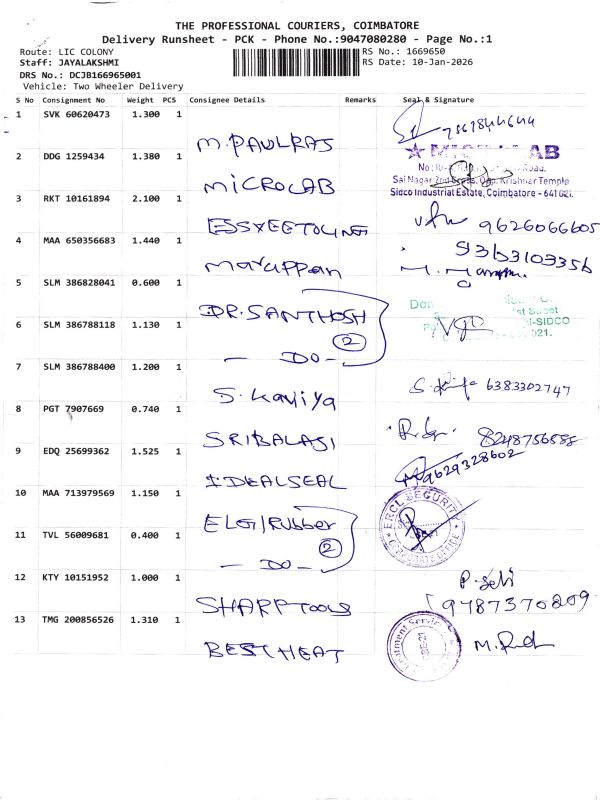 THE PROFESSIONAL COURIERS, COIMBATORE
Delivery Runsheet - PCK - Phone No.:9047080280 - Page No.:1
Route: LIC COLONY
RS No.: 1669650
Staff: JAYALAKSHMI
RS Date: 10-Jan-2026
DRS No.: DCJB166965001
Vehicle: Two Wheeler Delivery
S No Consignment No Weight PCS Consignee Details Remarks Seal & Signature
1 SVK 60620473 1.300 1
M. PAULRAJ
2 DDG 1259434 1.380 1
MICROLAB
LAB
Sai Nagar 2nd Cross, Opp. Krishnar Temple
Sidco Industrial Estate, Coimbatore - 641 021.
3 RKT 10161894 2.100 1
9626066605
4 MAA 650356683 1.440 1
Maruppan
9363103356
5 SLM 386828041 0.600 1
DR. SANTHOSH
2
6 SLM 386788118 1.130 1
- DO -
SIDCO
021.
7 SLM 386788400 1.200 1
S. Kaviya
6383302747
8 PGT 7907669 0.740 1
SRIBALAJI
8248756588
9 EDQ 25699362 1.525 1
IDEALSEAL
9629328602
10 MAA 713979569 1.150 1
ELGI Rubber
2
ERCL SECURITY
CORPORATE OFFICE
11 TVL 56009681 0.400 1
- DO -
12 KTY 10151952 1.000 1
SHARPTOOLS
9487370809
13 TMG 200856526 1.310 1
BESTHEAT